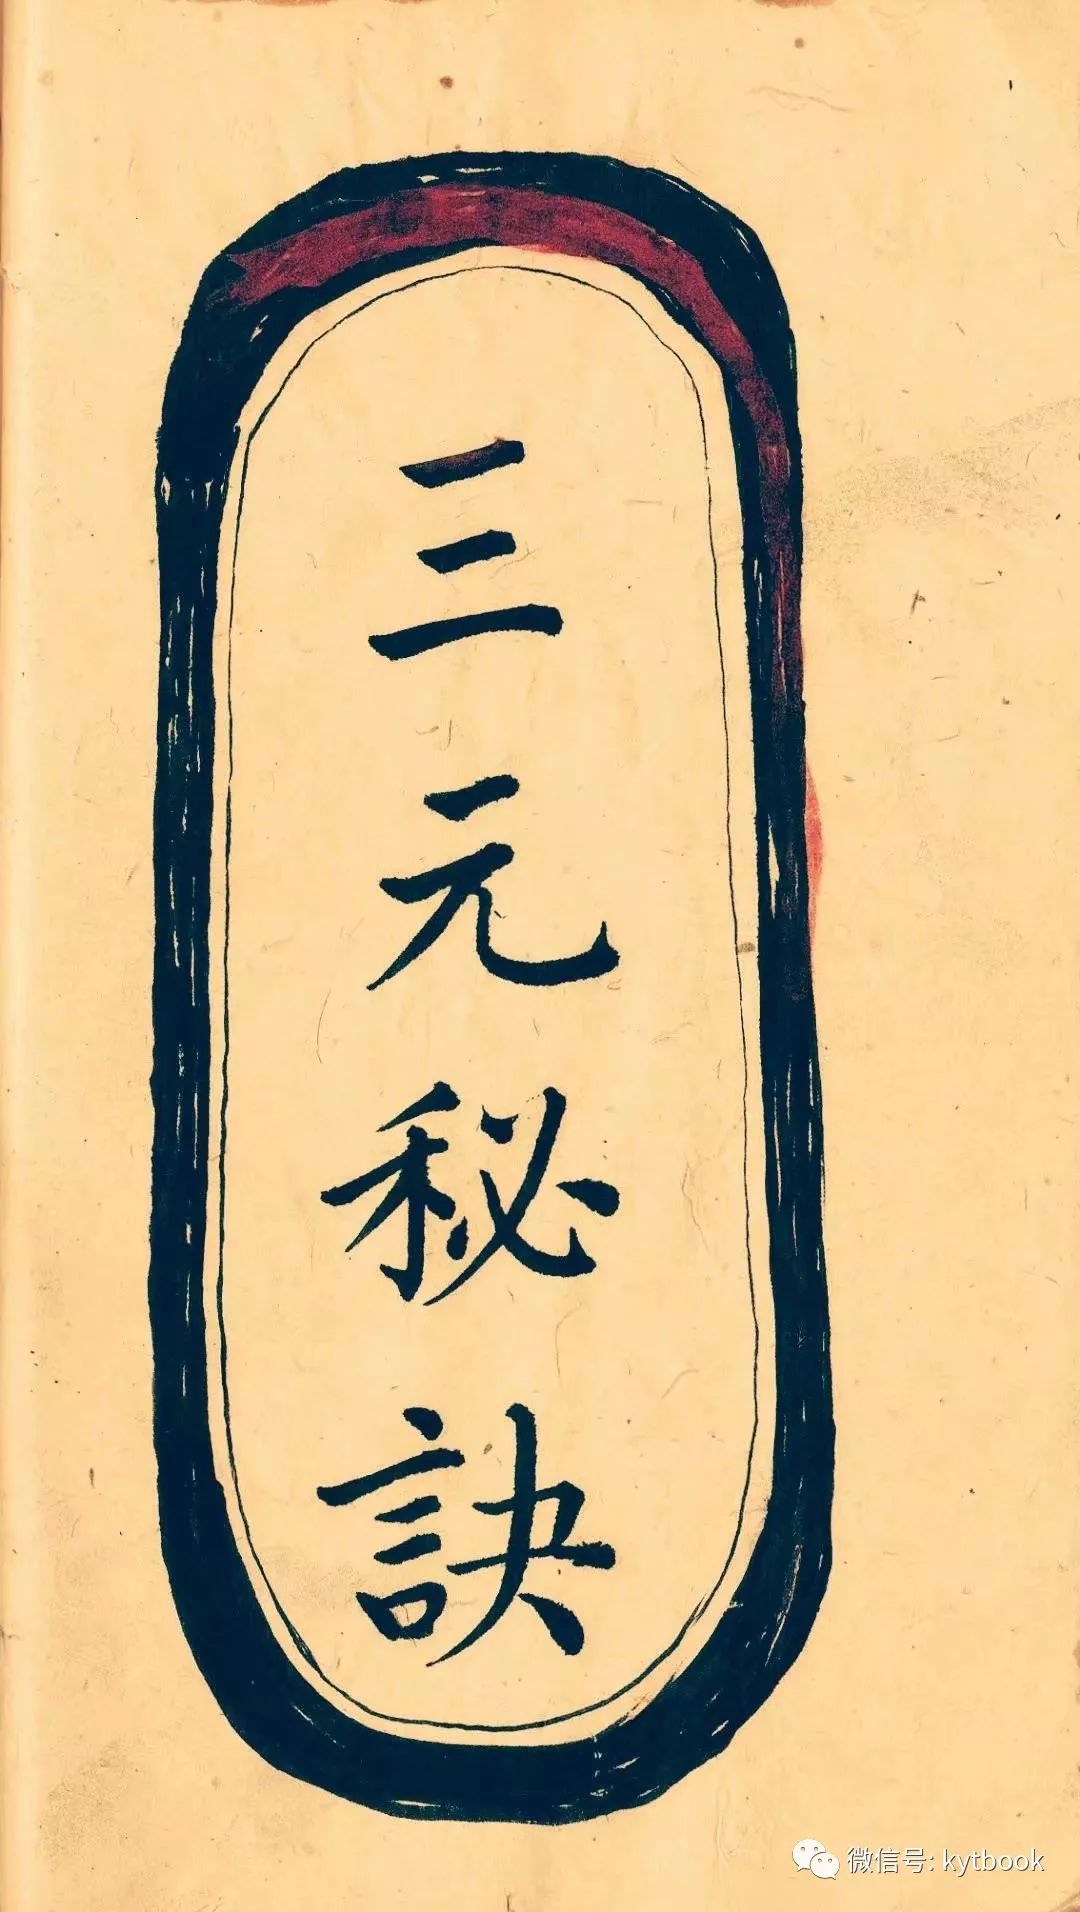 三元秘訣
微信号: kytbook